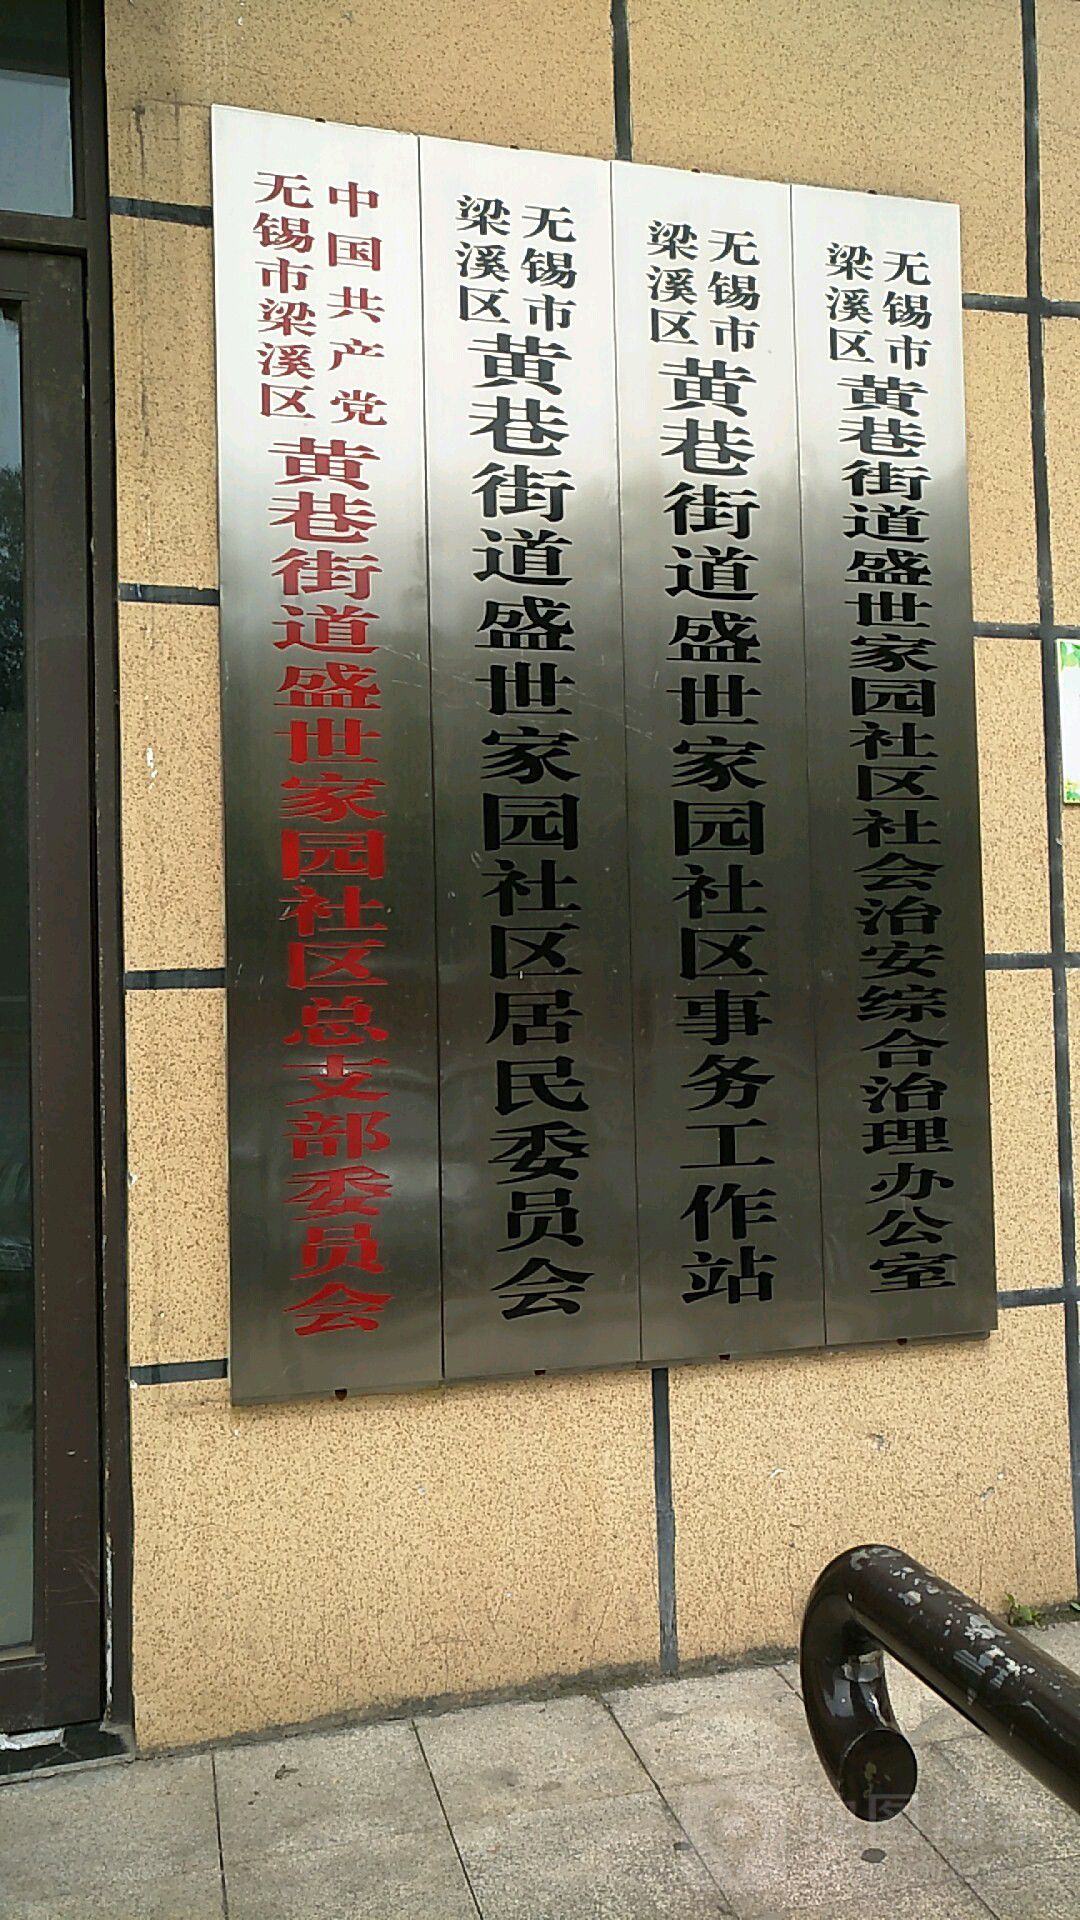 中国共产党
无锡市梁溪区
黄巷街道盛世家园社区总支部委员会
无锡市
梁溪区
黄巷街道盛世家园社区居民委员会
无锡市
梁溪区
黄巷街道盛世家园社区事务工作站
无锡市
梁溪区
黄巷街道盛世家园社区社会治安综合治理办公室